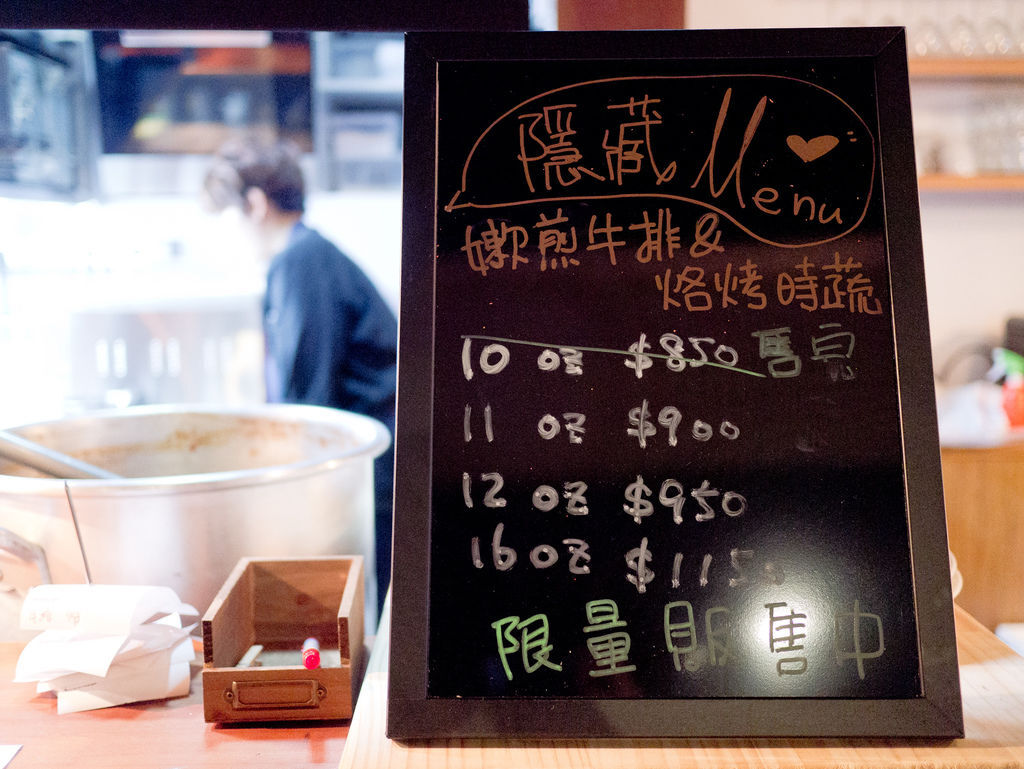 隱藏 Menu
嫩煎牛排&
烙烤時蔬
10 oz $850 售完
11 oz $900
12 oz $950
16 oz $1150
限量販售中